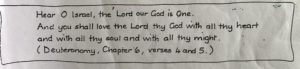 Hear O Israel, the Lord our God is One.
And you shall love the Lord thy God with all thy heart
and with all thy soul and with all thy might.
(Deuteronomy, Chapter 6, verses 4 and 5.)